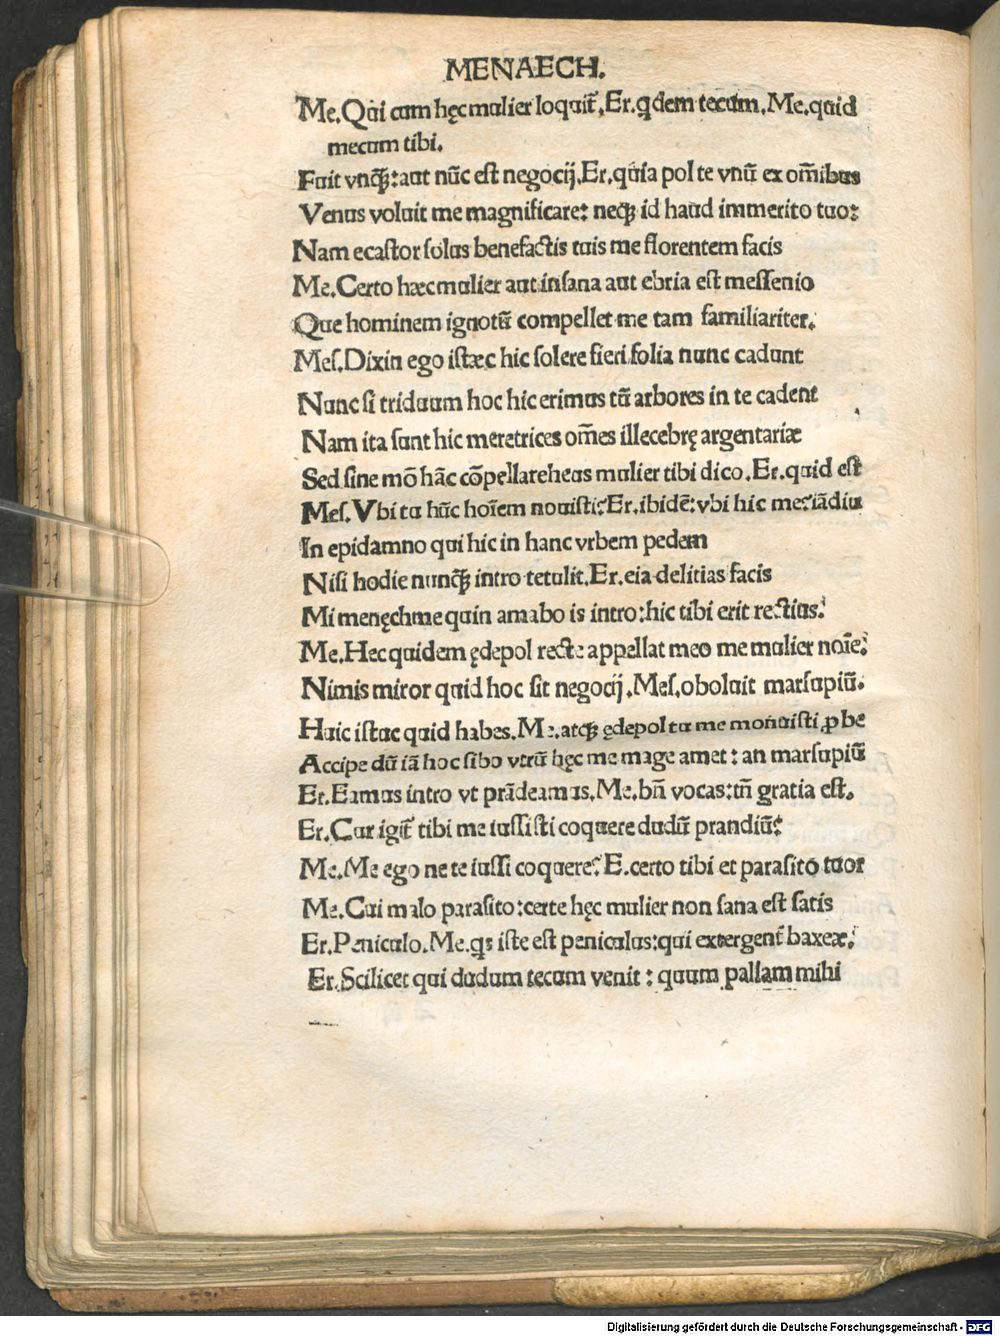 MENAECH.
Me.Qui cum hęc mulier loquit̃.Er.q̃dem tecum.Me.quid
mecum tibi.
Fuit vnq̃ꝫ:aut nũc est negocij.Er.quia pol te vnũ ex om̃ibus
Venus voluit me magnificare: neq̃ꝫ id haud immerito tuo:
Nam ecastor solus benefactis tuis me florentem facis
Me.Certo hæc mulier aut insana aut ebria est messenio
Que hominem ignotũ compellet me tam familiariter.
Mes.Dixin ego istæc hic solere fieri folia nunc cadunt
Nunc si triduum hoc hic erimus tũ arbores in te cadent
Nam ita sunt hic meretrices om̃es illecebrę argentariæ
Sed sine mõ hãc cõpellare heus mulier tibi dico.Er.quid est
Mes.Vbi tu hũc hoĩem nouisti?Er.ibidẽ:vbi hic me?iãdiu
In epidamno qui hic in hanc vrbem pedem
Nisi hodie nunq̃ꝫ intro tetulit.Er.eia delitias facis
Mi menęchme quin amabo is intro:hic tibi erit rectius?
Me.Hec quidem ędepol recte appellat meo me mulier noĩe?
Nimis miror quid hoc sit negocij.Mes.oboluit marsupiũ.
Huic istuc quid habes.Me.atq̃ꝫ ędepol tu me monuisti ꝓbe
Accipe dũ iã hoc sibo vtrũ hęc me mage amet: an marsupiũ
Er.Eamus intro vt prãdeamus.Me.bñ vocas:tñ gratia est.
Er.Cur igit̃ tibi me iussisti coquere dudũ prandiũ?
Me.Me ego ne te iussi coquere? E.certo tibi et parasito tuor
Me.Cui malo parasito:certe hęc mulier non sana est satis
Er.Peniculo.Me.qͥs iste est peniculus:qui extergent̃ baxeæ?
Er.Scilicet qui dudum tecum venit: quum pallam mihi
Digitalisierung gefördert durch die Deutsche Forschungsgemeinschaft - DFG